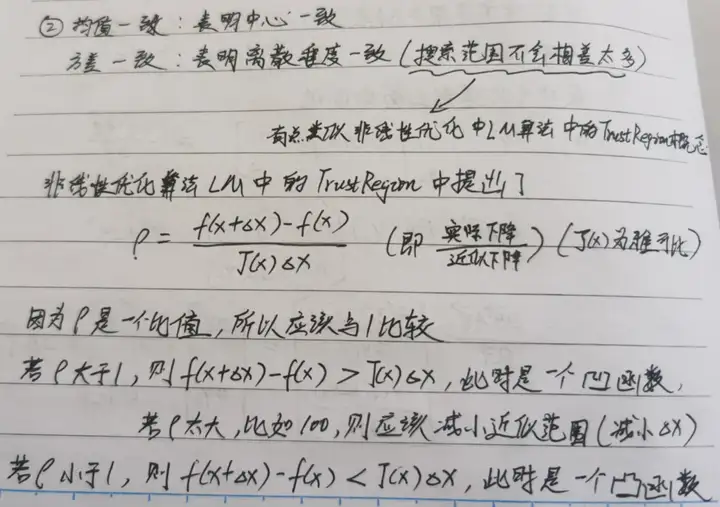 ② 均值一致：表明中心一致
方差一致：表明离散程度一致（搜索范围不会相差太多）
有点类似非线性优化中LM算法中的TrustRegion概念
非线性优化算法LM中的TrustRegion中提出了
ρ = \frac{f(x+Δx)-f(x)}{J(x)Δx} （即 \frac{实际下降}{近似下降}）（J(x)为雅可比）
因为ρ是一个比值，所以应该与1比较
若ρ大于1，则f(x+Δx)-f(x) > J(x)Δx，此时是一个凹函数，
若ρ太大，比如100，则应该减小近似范围（减小Δx）
若ρ小于1，则f(x+Δx)-f(x) < J(x)Δx，此时是一个凸函数